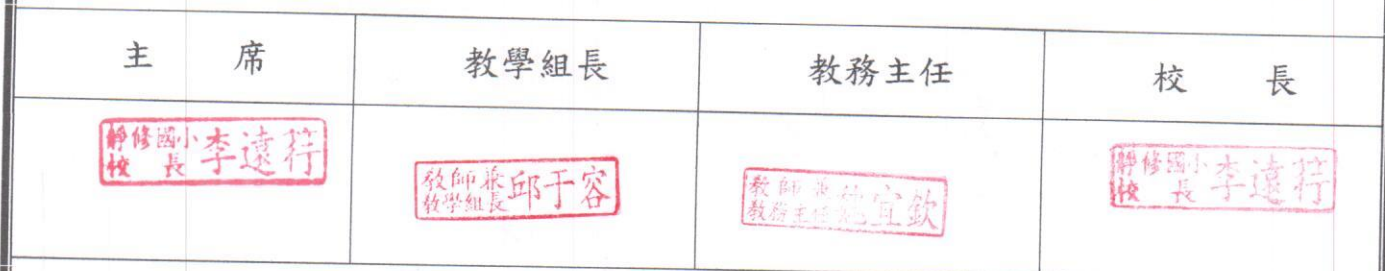 主 席 教學組長 教務主任 校 長
靜修國小 校長 李遠
教師兼 教學組長 邱于容
教師兼 教務主任 宜欽
靜修國小 校長 李遠